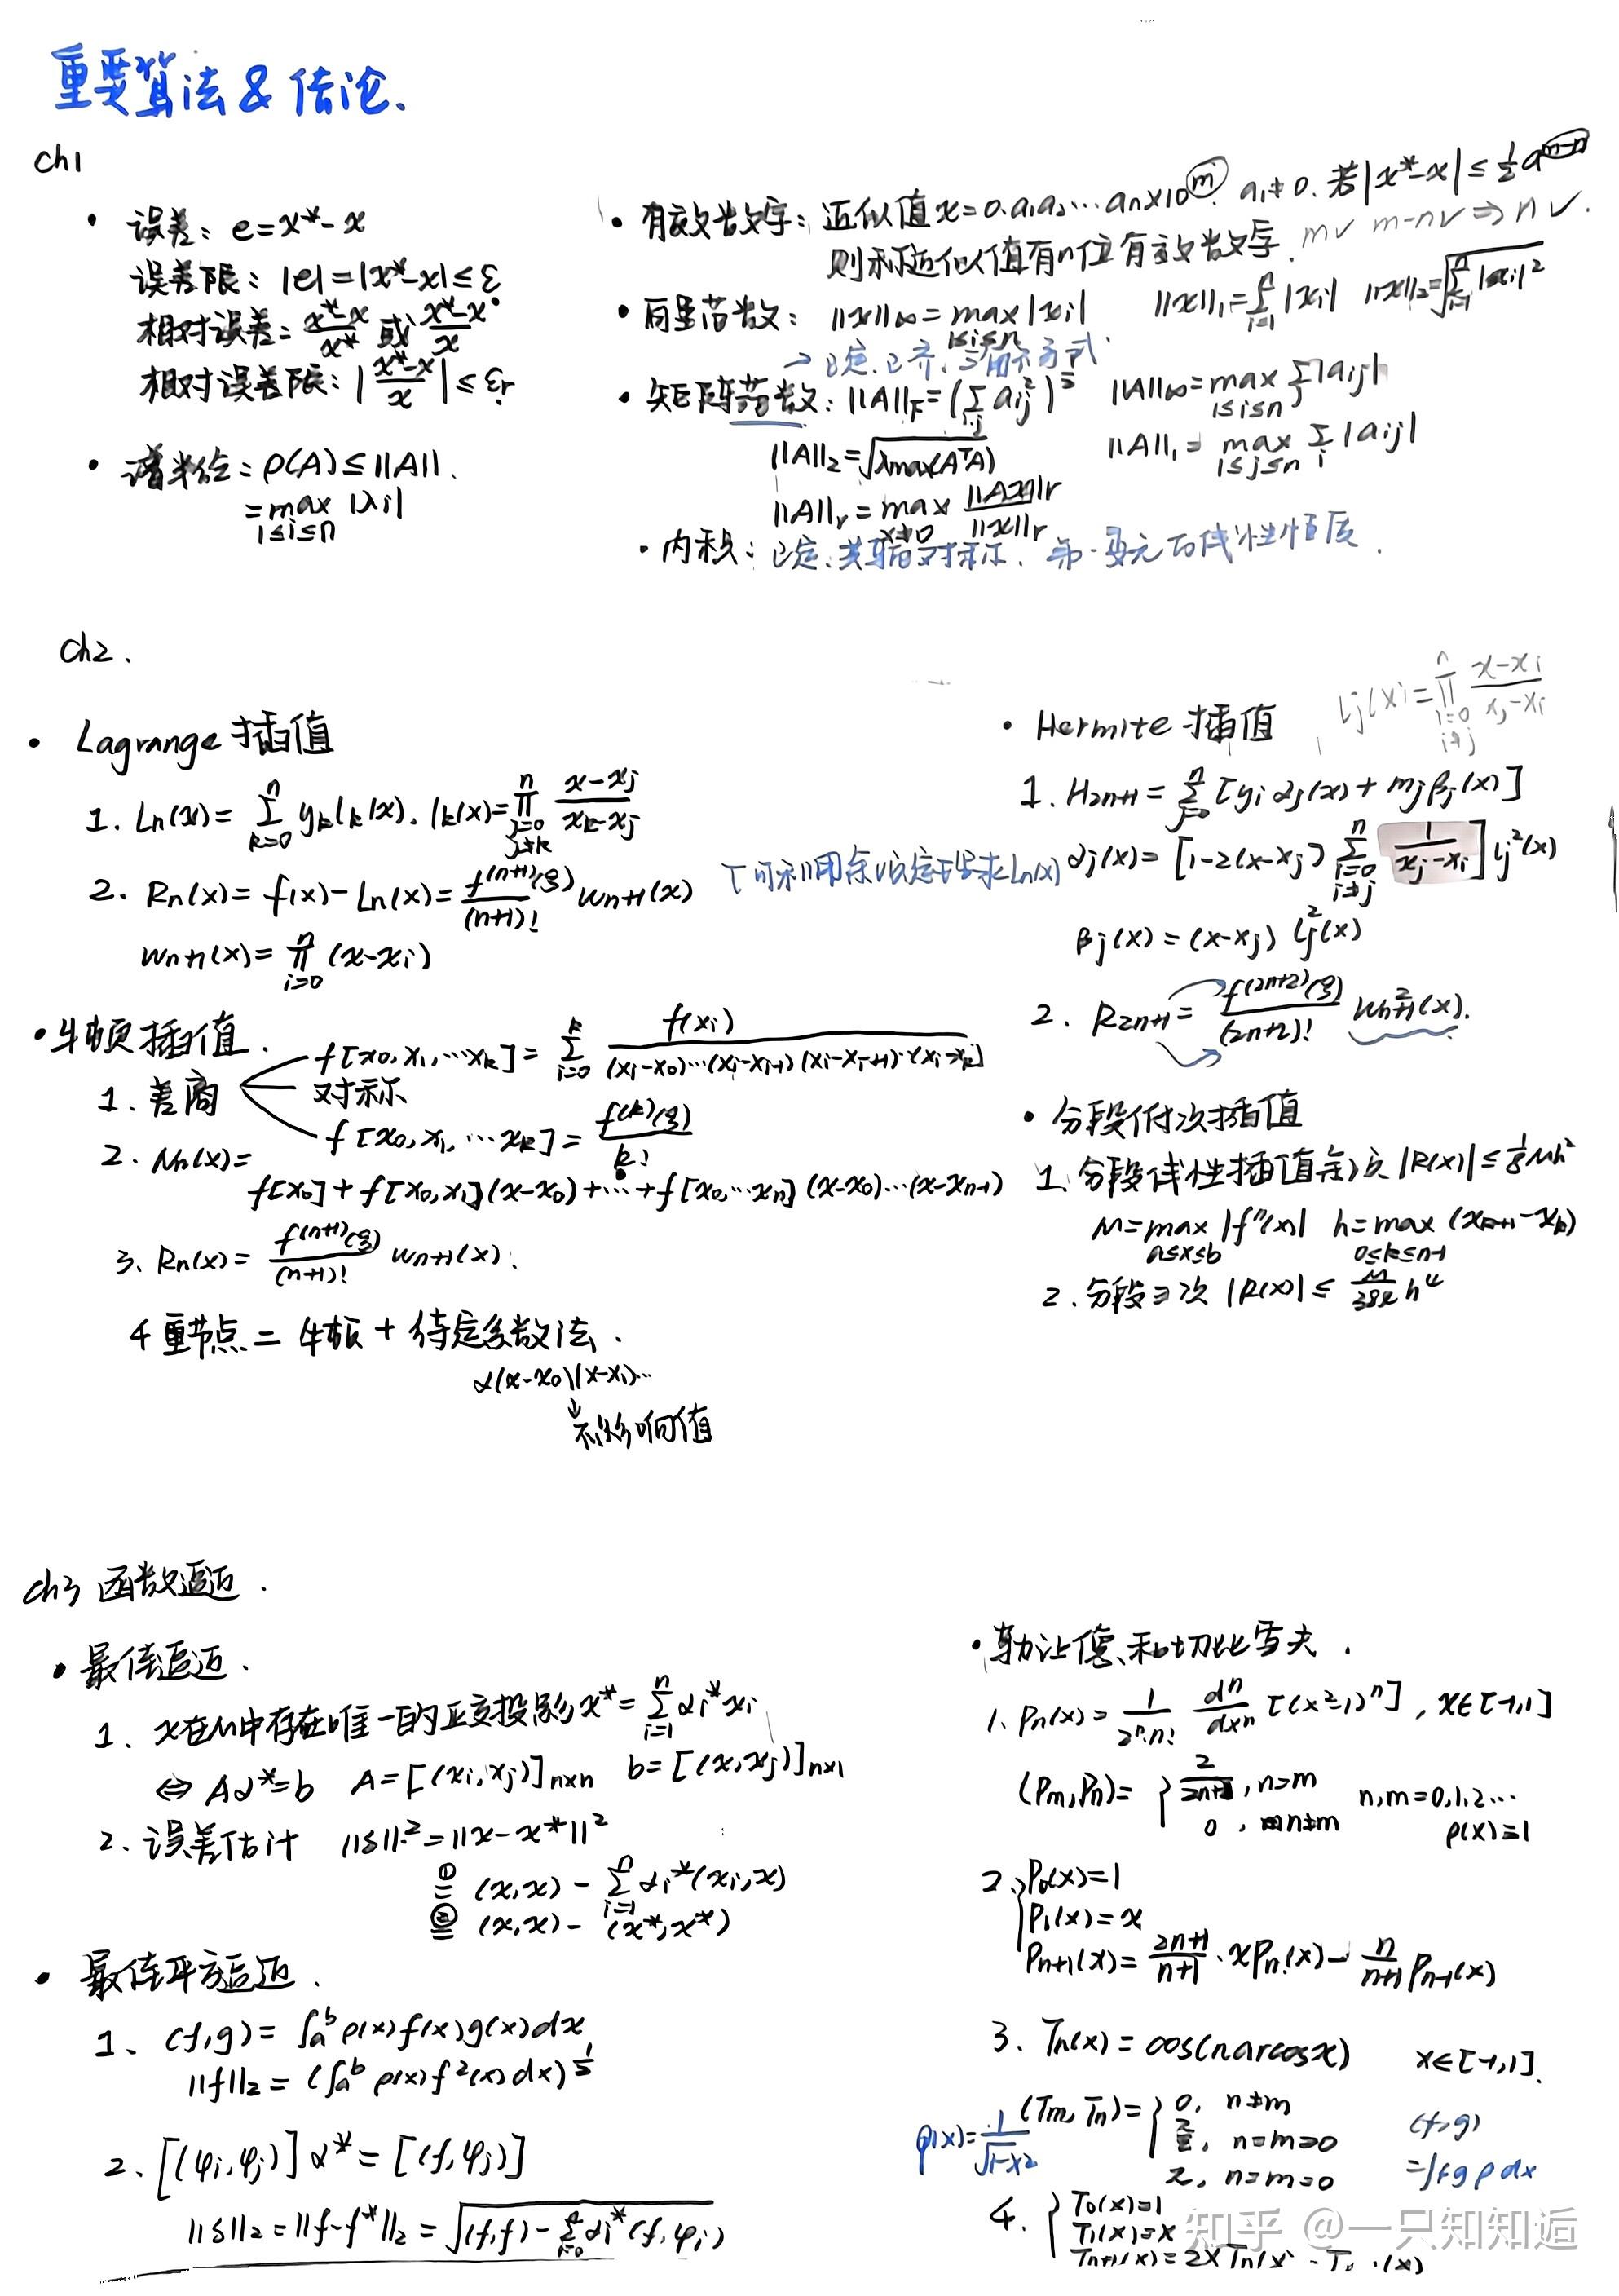 重要算法 & 结论.
ch1
• 误差: e=x*-x
误差限: |e|=|x*-x|≤ε
相对误差= (x*-x)/x* 或 (x*-x)/x
相对误差限: |(x*-x)/x|≤εr
• 谱半径: ρ(A)≤||A||.
=max |λi|
1≤i≤n
• 有效数字: 近似值 x=0.a1a2…an×10^m. a1≠0. 若|x*-x|≤
则称近似值有n位有效数字. m✓ m-n✓ ⇒ n✓.
• 向量范数: ||x||∞=max|xi| ||x||1=Σ|xi| ||x||2=√Σ|xi|²
1≤i≤n
→正定.正齐.三角不等式.
• 矩阵范数: ||A||F=(Σ aij²)^½ ||A||∞=max Σ|aij|
1≤i≤n j
||A||2=√λmax(AᵀA) ||A||1= max Σ|aij|
1≤j≤n i
||A||r=max ||Ax||r/||x||r
x≠0
• 内积: 正定、共轭对称. 第一变元的线性性质.
ch2.
• Lagrange 插值
1. Ln(x)= Σ(k=0,n) yk lk(x). lk(x)=Π(j=0,j≠k,n) (x-xj)/(xk-xj)
2. Rn(x)=f(x)-Ln(x)= f^(n+1)(ξ)/(n+1)! wn+1(x)
wn+1(x)=Π(i=0,n)(x-xi)
• 牛顿插值.
1. 差商
f[x0,x1,…xk]= Σ(i=0,k) f(xi)/((xi-x0)…(xi-xi-1)(xi-xi+1)…(xi-xk))
对称
f[x0,x1,…xk]= f^(k)(ξ)/k!
2. Nn(x)=
f[x0]+f[x0,x1](x-x0)+…+f[x0,…xn](x-x0)…(x-xn-1)
3. Rn(x)= f^(n+1)(ξ)/(n+1)! wn+1(x).
4 重节点 = 牛顿 + 待定系数法.
α(x-x0)(x-x1)…
↓
不影响值
• Hermite 插值
lj(x)=Π(i=0,i≠j,n) (x-xi)/(xj-xi)
1. H2n+1 = Σ(j=0,n)[yj αj(x)+mjβj(x)]
αj(x)= [1-2(x-xj) Σ(i=0,i≠j,n) 1/(xj-xi)] lj²(x)
βj(x)=(x-xj) lj²(x)
2. R2n+1 = f^(2n+2)(ξ)/(2n+2)! wn+1²(x).
• 分段低次插值
1. 分段线性插值余项 |R(x)|≤1/8 Mh²
M=max|f''(x)| h=max(xk+1-xk)
a≤x≤b 0≤k≤n-1
2. 分段三次 |R(x)|≤ M/384 h⁴
ch3 函数逼近.
• 最佳逼近.
1. x在M中存在唯一的正交投影x*=Σ(i=1,n) αi*xi
⇔ Aα*=b A=[(xi,xj)]n×n b=[(x,xj)]n×1
2. 误差估计 ||δ||²=||x-x*||²
①= (x,x) - Σ(i=1,n) αi*(xi,x)
②= (x,x) - (x*,x*)
• 最佳平方逼近.
1. (f,g)=∫ab ρ(x)f(x)g(x)dx
||f||2=(∫ab ρ(x)f²(x)dx)^½
2. [(φi,φj)]α*=[(f,φj)]
||δ||2=||f-f*||2=√((f,f)-Σ(i=0,n)αi*(f,φi))
• 勒让德、和切比雪夫.
1. Pn(x)= 1/(2ⁿn!) dⁿ/dxⁿ [(x²-1)ⁿ], x∈[-1,1]
(Pm,Pn)= { 2/(2n+1), n=m n,m=0,1,2…
0, m≠n ρ(x)=1
2. { P0(x)=1
P1(x)=x
Pn+1(x)= (2n+1)/(n+1)·xPn(x)- n/(n+1) Pn-1(x)
3. Tn(x)=cos(narccosx) x∈[-1,1].
ρ(x)=1/√(1-x²) (Tm,Tn)= { 0, n≠m (f,g)
π/2, n=m≠0 =∫fgρdx
π, n=m=0
4. { T0(x)=1
T1(x)=x
Tn+1(x)=2xTn(x)-Tn-1(x)
知乎 @一只知知逅